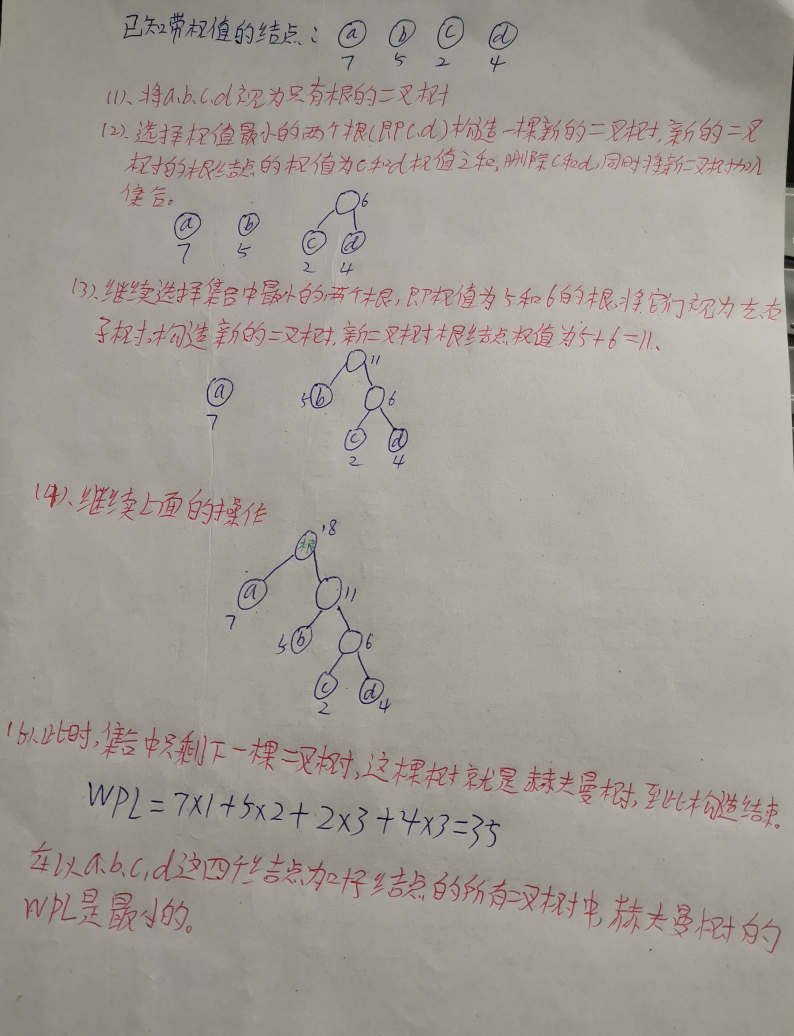 已知带权值的结点: a b c d
7 5 2 4
(1)、将a.b.c.d视为只有根的二叉树
(2)、选择权值最小的两个根(即c,d)构造一棵新的二叉树,新的二叉
树的根结点的权值为c和d权值之和,删除c和d,同时将新二叉树加入
集合。
6
a b c d
7 5 2 4
(3)、继续选择集合中最小的两个根,即权值为5和6的根,将它们视为左右
子树,构造新的二叉树,新二叉树根结点权值为5+6=11、
11
a 5 b 6
7
c d
2 4
(4)、继续上面的操作
根 18
a 11
7
5 b 6
c d 4
2
(5)、此时,集合中只剩下一棵二叉树,这棵树就是赫夫曼树,至此构造结束。
WPL=7×1+5×2+2×3+4×3=35
在以a.b.c.d这四个结点为叶子结点的所有二叉树中,赫夫曼树的
WPL是最小的。